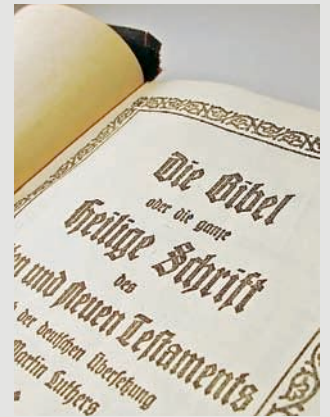 Die Bibel
oder die ganze
Heilige Schrift
des
und Neuen Testaments
der deutschen Übersetzung
Martin Luthers